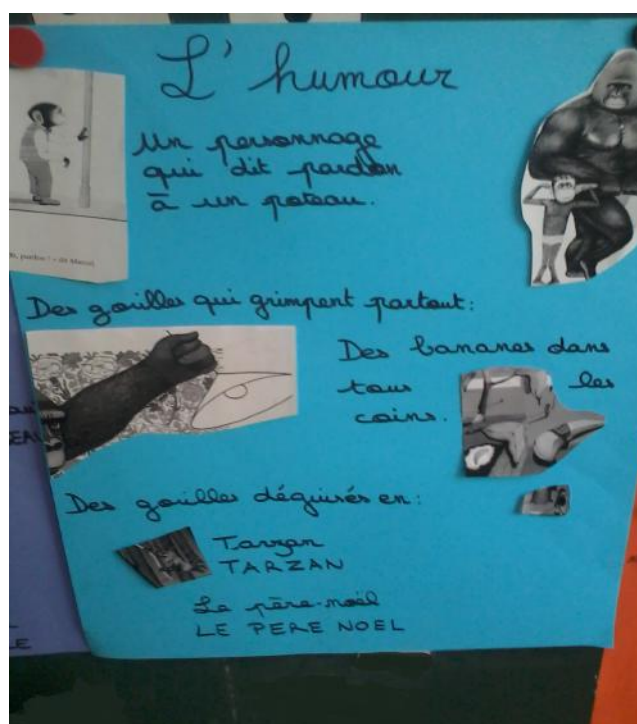 L'humour
Un personnage
qui dit pardon
à un poteau.
pardon ! » dit Marcel
Des gorilles qui grimpent partout :
Des bananes dans
tous les
coins.
Des gorilles déguisés en :
Tarzan
TARZAN
Le père-noël
LE PERE NOEL